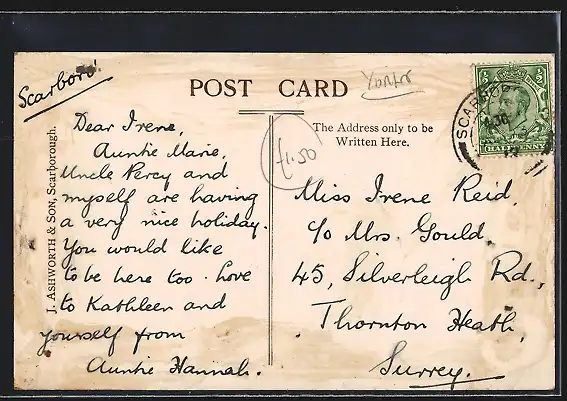 Scarboro'
POST CARD
Yorks
£1.50
J. Ashworth & Son, Scarborough.
Dear Irene,
Auntie Marie,
Uncle Percy and
myself are having
a very nice holiday.
You would like
to be here too. Love
to Kathleen and
yourself from
Auntie Hannah.
The Address only to be
Written Here.
Miss Irene Reid,
c/o Mrs. Gould,
45, Silverleigh Rd.,
Thornton Heath,
Surrey.
SCARBORO
HALFPENNY